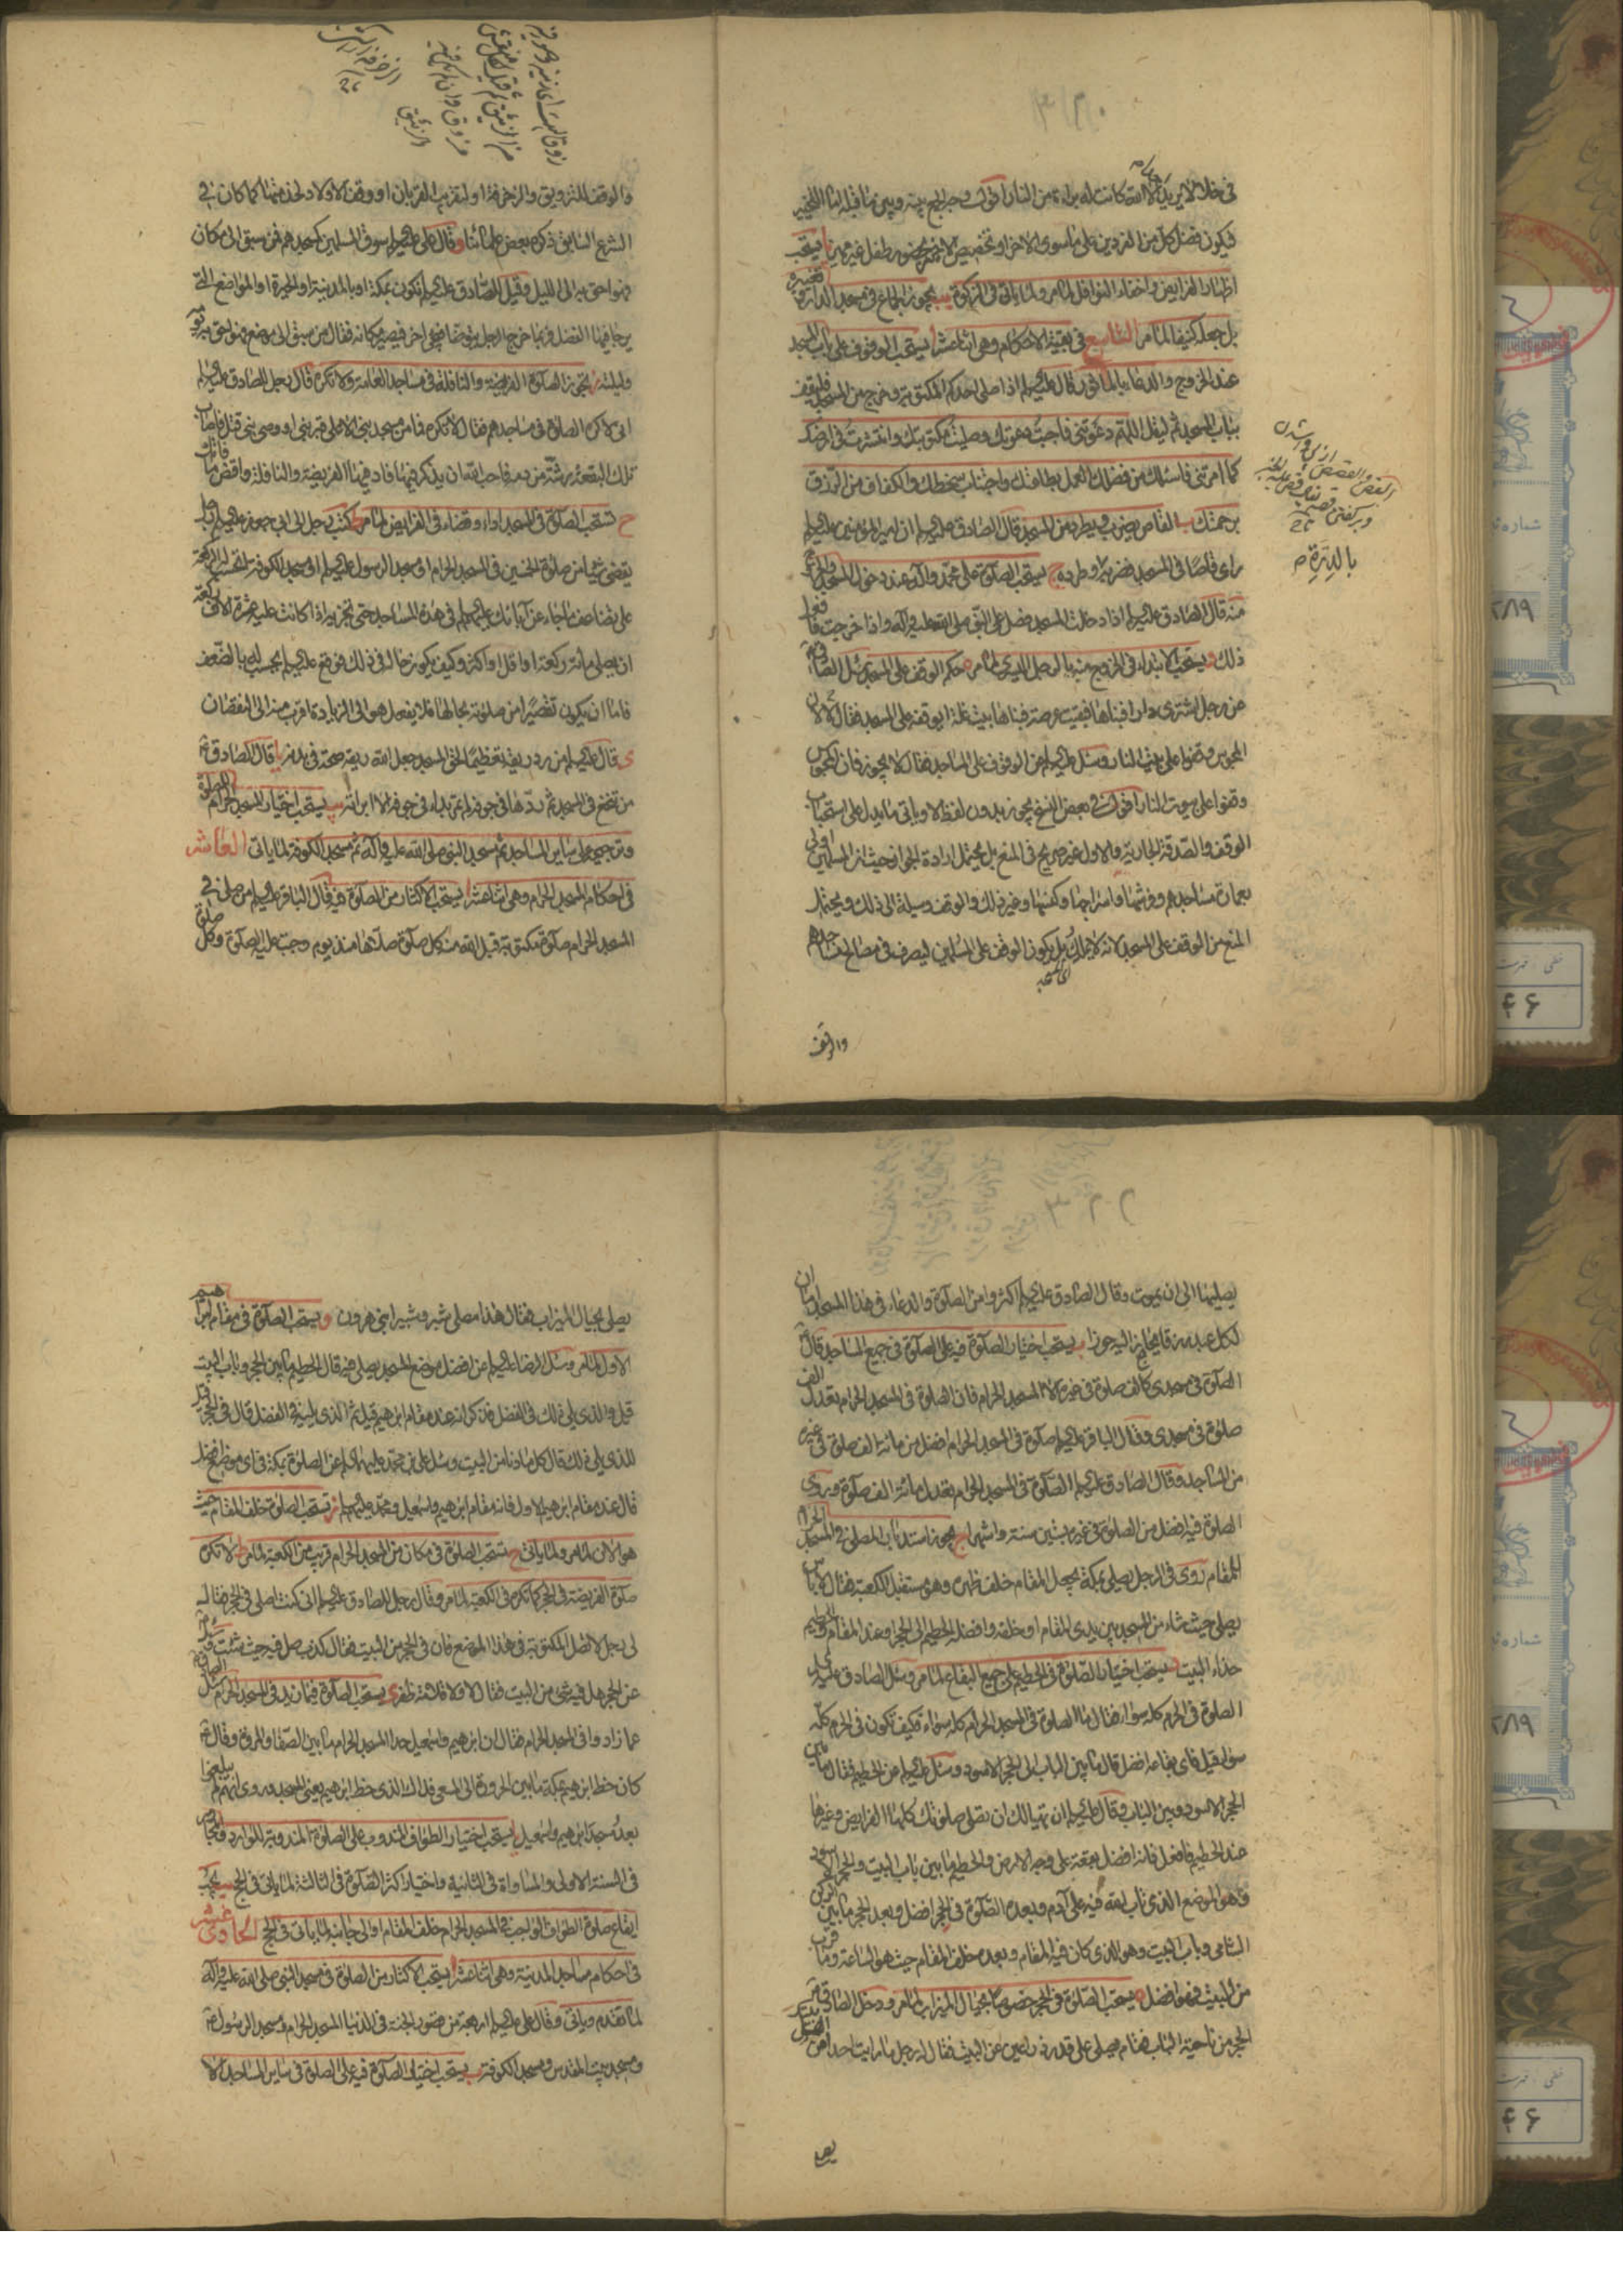 في خلالا لا يريد الا الله كانت له براءة من النار اقول وجه الجمع بينه وبين ما قبله اما التخيير
فيكون فضل كل من الفردين على ما سوى الاخر او تخصيص الاخير بحضور طفل غير مميز يا يستحب
اظهار الفرايض واخفاء النوافل لما مر ولما ياتي في الزكوة يب يجوز الجماع في مسجد الدار وتغييره
بل جعله كنيفا لما مر التاسع في بقية الاحكام وهي اثنا عشر ا يستحب الوقوف على باب المسجد
عند الخروج والدعاء بالماثور قال عليه السلام اذا صلى احدكم المكتوبة وخرج من المسجد فليقف
بباب المسجد ثم ليقل اللهم دعوتني فاجبت دعوتك وصليت مكتوبتك وانتشرت في ارضك
كما امرتني فاسئلك من فضلك العمل بطاعتك واجتناب سخطك والكفاف من الرزق
برحمتك ب القاص يضرب ويطرد من المسجد قال الصادق عليه السلام ان امير المؤمنين عليه السلام
راى قاصا في المسجد فضربه وطرده ج يستحب الصلوة على محمد وآله عند دخول المسجد والخروج
منه قال الصادق عليه السلام اذا دخلت المسجد فصل على النبي صلى الله عليه وآله واذا خرجت فافعل
ذلك د يستحب الابتداء في الخروج منه بالرجل اليسرى لما مر ه حكم الوقف على المسجد سئل الصادق
عن رجل اشترى دارا فبناها فبقيت عرصة فبناها بيت غلة ايوقفه على المسجد فقال ان
المجوس وقفوا على بيت النار وسئل عليه السلام عن الوقوف على المساجد فقال لا يجوز فان المجوس
وقفوا على بيوت النار اقول في بعض النسخ يجوز بدون لفظ لا وياتي ما يدل على استحباب
الوقف والصدقة الجارية والاول غير صريح في المنع بل يحتمل ارادة الجواز حيث ان المسلمين اولى
بعمارة مساجدهم وفرشها واسراجها وكنسها وغير ذلك والوقف وسيلة الى ذلك ويحتمل
المنع من الوقف على المسجد لانه لا يملك بل يكون الوقف على المسلمين ليصرف في مصالح مساجدهم
والوقف
بالدرة
والوقف للتزويق والزخرفة او لتقريب القربان او وقف الاولاد لخدمتها كما كان في
الشرع السابق ذكره بعض علمائنا و قال علي عليه السلام سوق المسلمين كمسجدهم فمن سبق الى مكان
فهو احق به الى الليل وقيل للصادق عليه السلام نكون بمكة او بالمدينة او الحيرة او المواضع التي
يرجا فيها الفضل فربما خرج الرجل يتوضا فيجيء اخر فيصير مكانه فقال من سبق الى موضع فهو احق به يومه
وليلته ز يجوز الصلوة الفريضة والنافلة في مساجد العامة ولا تكره قال رجل للصادق عليه السلام
اني لاكره الصلوة في مساجدهم فقال لا تكره فما من مسجد بني الا على قبر نبي او وصي نبي قتل فاصاب
تلك البقعة رشة من دمه فاحب الله ان يذكر فيها فاد فيها الفريضة والنافلة واقض ما فاتك
ح تستحب الصلوة في المسجد اداء وقضاء في الفرايض لما مر ط كتب رجل الى ابي جعفر عليه السلام رجل
يقضي شيئا من صلوة الخمسين في المسجد الحرام او مسجد الرسول عليه السلام او مسجد الكوفة اتحسب له الركعة
على تضاعف ما جاء عن آبائك عليهم السلام في هذه المساجد حتى تجزيه اذا كانت عليه عشرة الاف ركعة
ان يصلي مائة ركعة او اقل او اكثر وكيف يكون حاله في ذلك فوقع عليه السلام يحسب له بالضعف
فاما ان يكون تقصيرا من صلوته بحالها فلا يفعل هو الى الزيادة اقرب منه الى النقصان
ى قال عليه السلام من رد ريقه تعظيما لحق المسجد جعل الله ريقه صحة في بدنه يا قال الصادق
من تنخع في المسجد ثم ردها في جوفه لم تمر بداء في جوفه الا ابراته يب يستحب اختيار المسجد الحرام للصلوة
وترجيحه على ساير المساجد ثم مسجد النبي صلى الله عليه وآله ثم مسجد الكوفة لما ياتي العاشر
في احكام المسجد الحرام وهي اثنا عشر ا يستحب الاكثار من الصلوة فيه قال الباقر عليه السلام من صلى في
المسجد الحرام صلوة مكتوبة قبل الله منه كل صلوة صلاها منذ يوم وجبت عليه الصلوة وكل صلوة
٣٢٢
يصليها الى ان يموت وقال الصادق عليه السلام اكثروا من الصلوة والدعاء في هذا المسجد اما ان
لكل عبد رزقا يحاز اليه حوزا ب يستحب اختيار الصلوة فيه على الصلوة في جميع المساجد قال
الصلوة في مسجدي كالف صلوة في غيره الا المسجد الحرام فان الصلوة في المسجد الحرام تعدل الف
صلوة في مسجدي وقال الباقر عليه السلام صلوة في المسجد الحرام افضل من مائة الف صلوة في غيره
من المساجد وقال الصادق عليه السلام الصلوة في المسجد الحرام تعدل مائة الف صلوة وروى
الصلوة فيه افضل من الصلوة في غيره بستين سنة واشهرا ج يجوز استدبار المصلي في المسجد الحرام
للمقام روى في الرجل يصلي بمكة يجعل المقام خلف ظهره وهو مستقبل الكعبة فقال لا باس
يصلي حيث شاء من المسجد بين يدي المقام او خلفه وافضله الحطيم الى الحجر وعند المقام والحطيم
حذاء البيت د يستحب اختيار الصلوة في الحطيم على جميع البقاع لما مر وسئل الصادق عليه السلام
الصلوة في الحرم كله سواء فقال ما الصلوة في المسجد الحرام كله سواء فكيف تكون في الحرم كله
سواء قيل فاي بقاعه افضل قال ما بين الباب الى الحجر الاسود وسئل عليه السلام عن الحطيم فقال ما بين
الحجر الاسود وبين الباب وقال عليه السلام ان تهيا لك ان تصلي صلوتك كلها الفرايض وغيرها
عند الحطيم فافعل فانه افضل بقعة على وجه الارض والحطيم ما بين باب البيت والحجر الاسود
وهو الموضع الذي تاب الله فيه على آدم وبعده الصلوة في الحجر افضل وبعد الحجر ما بين الركن
الشامي وباب البيت وهو الذي كان فيه المقام وبعده خلف المقام حيث هو الساعة وما قرب
من البيت فهو افضل ه يستحب الصلوة في الحجر خصوصا بحيال الميزاب لما مر ودخل الصادق
الحجر من ناحية الباب فقام يصلي على قدر ذراعين من البيت فقال له رجل ما رايت احدا من
يصلي بحيال الميزاب فقال هذا مصلى شبر وشبير ابني هرون و يستحب الصلوة في مقام ابراهيم
الاول لما مر وسئل الرضا عليه السلام عن افضل موضع المسجد يصلى فيه قال الحطيم ما بين الحجر وباب البيت
قيل والذي يلي ذلك في الفضل فذكر انه عند مقام ابرهيم قيل ثم الذي يليه في الفضل قال في الحجر
للذي يلي ذلك قال كل ما دنا من البيت وسئل علي بن محمد عليهما السلام عن الصلوة بمكة في اي موضع افضل
قال عند مقام ابرهيم الاول فانه مقام ابرهيم واسمعيل ومحمد عليهم السلام ز تستحب الصلوة خلف المقام حيث
هو الان لما مر ولما ياتي ح تستحب الصلوة في مكان من المسجد الحرام قريب من الكعبة لما مر ط لا تكره
صلوة الفريضة في الحجر كما تكره في الكعبة لما مر وقال رجل للصادق عليه السلام اني كنت اصلي في الحجر فقال
لي رجل لا تصل المكتوبة في هذا الموضع فان في الحجر من البيت فقال كذب صل فيه حيث شئت وسئل
عن الحجر هل فيه شيء من البيت فقال لا ولا قلامة ظفر ى يستحب الصلوة فيما زيد في المسجد الحرام سئل
عما زادوا في المسجد الحرام فقال ان ابرهيم واسمعيل حدا المسجد الحرام ما بين الصفا والمروة وقال
كان خط ابرهيم بمكة ما بين الحزورة الى المسعى فذلك الذي خط ابرهيم يعني المسجد وروى انهم لم يبلغوا
بعد مسجد ابرهيم واسمعيل يا يستحب اختيار الطواف المندوب على الصلوة المندوبة للوارد
في السنة الاولى والمساواة في الثانية واختيار اكثار الصلوة في الثالثة لما ياتي في الحج يب يجب
ايقاع صلوة الطواف الواجب في المسجد الحرام خلف المقام او الى جانبه لما ياتي في الحج الحادي عشر
في احكام مساجد المدينة وهي اثنا عشر ا يستحب الاكثار من الصلوة في مسجد النبي صلى الله عليه وآله
لما تقدم وياتي وقال علي عليه السلام اربعة من قصور الجنة في الدنيا المسجد الحرام ومسجد الرسول
ومسجد بيت المقدس ومسجد الكوفة ب يستحب اختيار الصلوة فيه على الصلوة في ساير المساجد الا